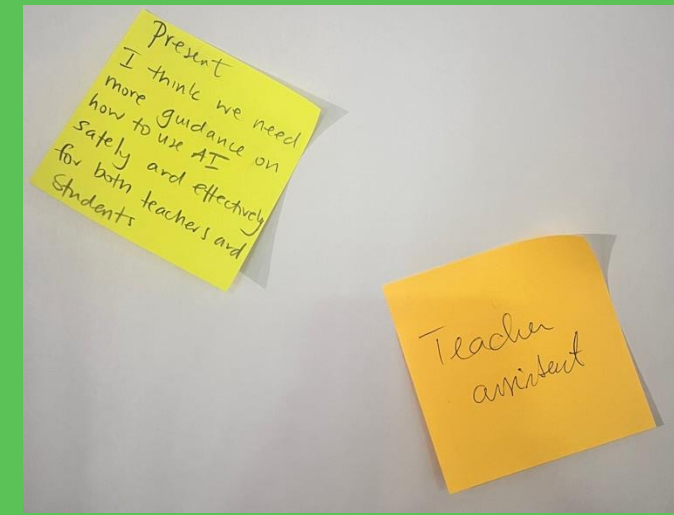 Present
I think we need
more guidance on
how to use AI
safely and effectively
for both teachers and
Students
Teacher
assistent